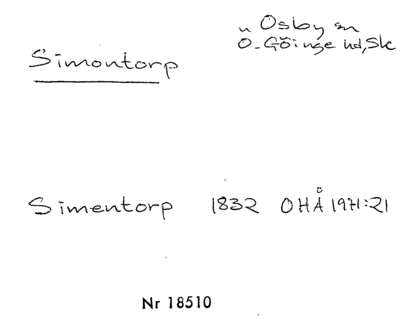 Simontorp
n Osby sn
Ö-Göinge hd, Sk
Simentorp 1832 OHÅ 1971:21
Nr 18510